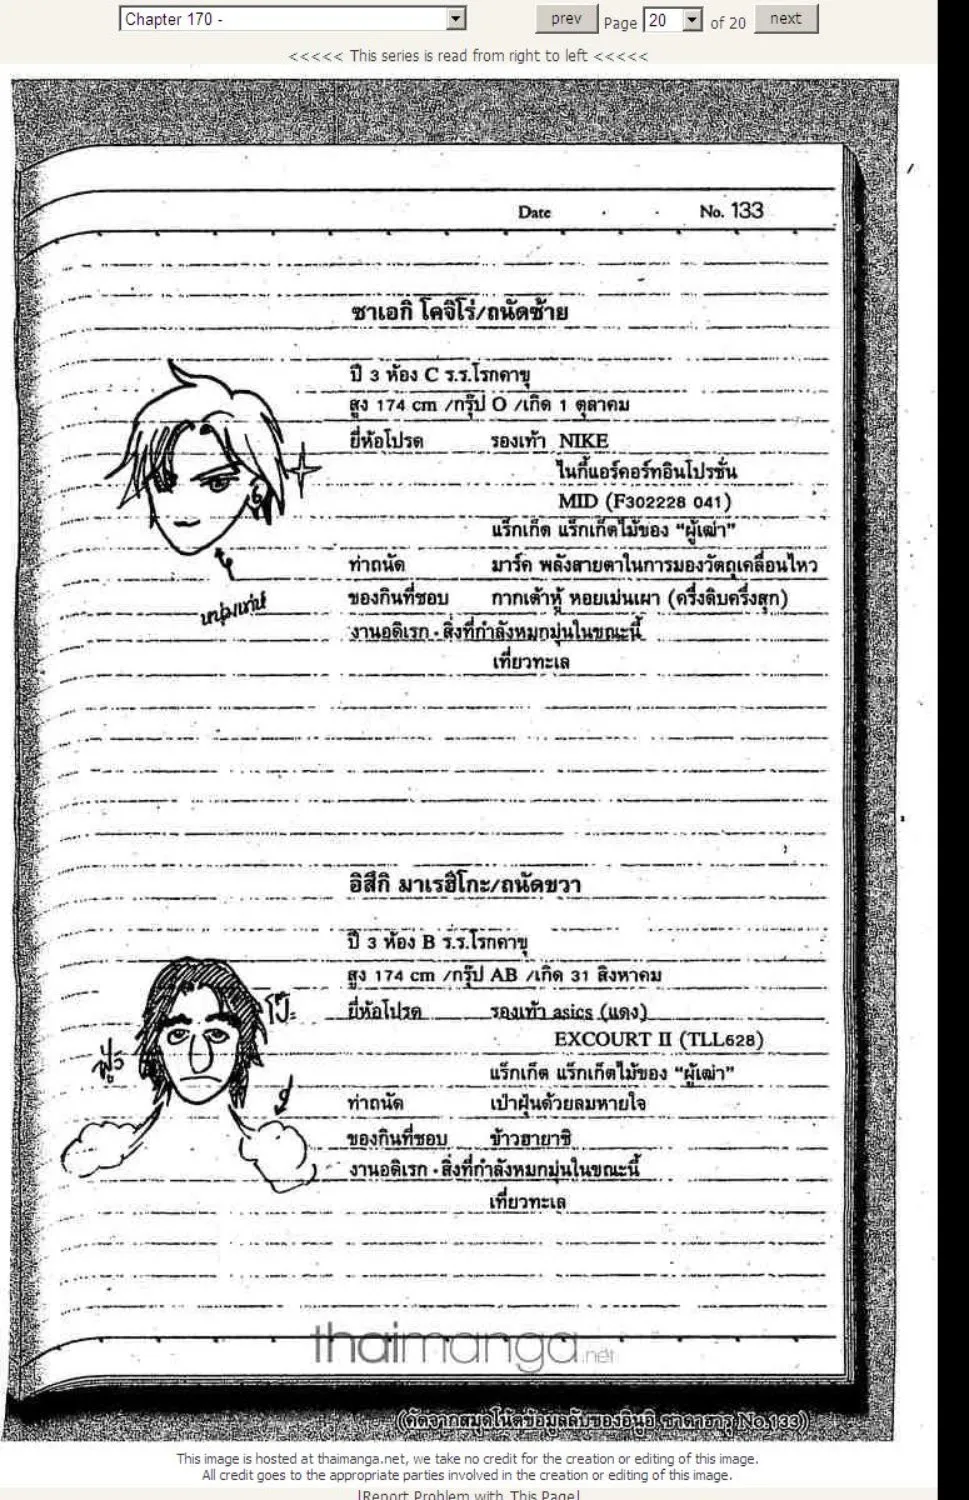 Chapter 170 -
prev Page 20 of 20 next
<<<<< This series is read from right to left <<<<<
Date . . No. 133
ซาเอกิ โคจิโร่/ถนัดซ้าย
ปี 3 ห้อง C ร.ร.โรกคาขุ
สูง 174 cm /กรุ๊ป O /เกิด 1 ตุลาคม
ยี่ห้อโปรด รองเท้า NIKE
ไนกี้แอร์คอร์ทอินโปรชั่น
MID (F302228 041)
แร็กเก็ต แร็กเก็ตไม้ของ “ผู้เฒ่า”
ท่าถนัด มาร์ค พลังสายตาในการมองวัตถุเคลื่อนไหว
ของกินที่ชอบ กากเต้าหู้ หอยเม่นเผา (ครึ่งดิบครึ่งสุก)
งานอดิเรก · สิ่งที่กำลังหมกมุ่นในขณะนี้
เที่ยวทะเล
อิสึกิ มาเรฮิโกะ/ถนัดขวา
ปี 3 ห้อง B ร.ร.โรกคาขุ
สูง 174 cm /กรุ๊ป AB /เกิด 31 สิงหาคม
โป๊ะ
ยี่ห้อโปรด รองเท้า asics (แดง)
EXCOURT II (TLL628)
แร็กเก็ต แร็กเก็ตไม้ของ “ผู้เฒ่า”
ท่าถนัด เป่าฝุ่นด้วยลมหายใจ
ของกินที่ชอบ ข้าวฮายาชิ
งานอดิเรก · สิ่งที่กำลังหมกมุ่นในขณะนี้
เที่ยวทะเล
thaimanga.net
(คัดจากสมุดโน้ตข้อมูลลับของอินูอิ ซาดาฮารุ No.133)
This image is hosted at thaimanga.net, we take no credit for the creation or editing of this image.
All credit goes to the appropriate parties involved in the creation or editing of this image.
[Report Problem with This Page]